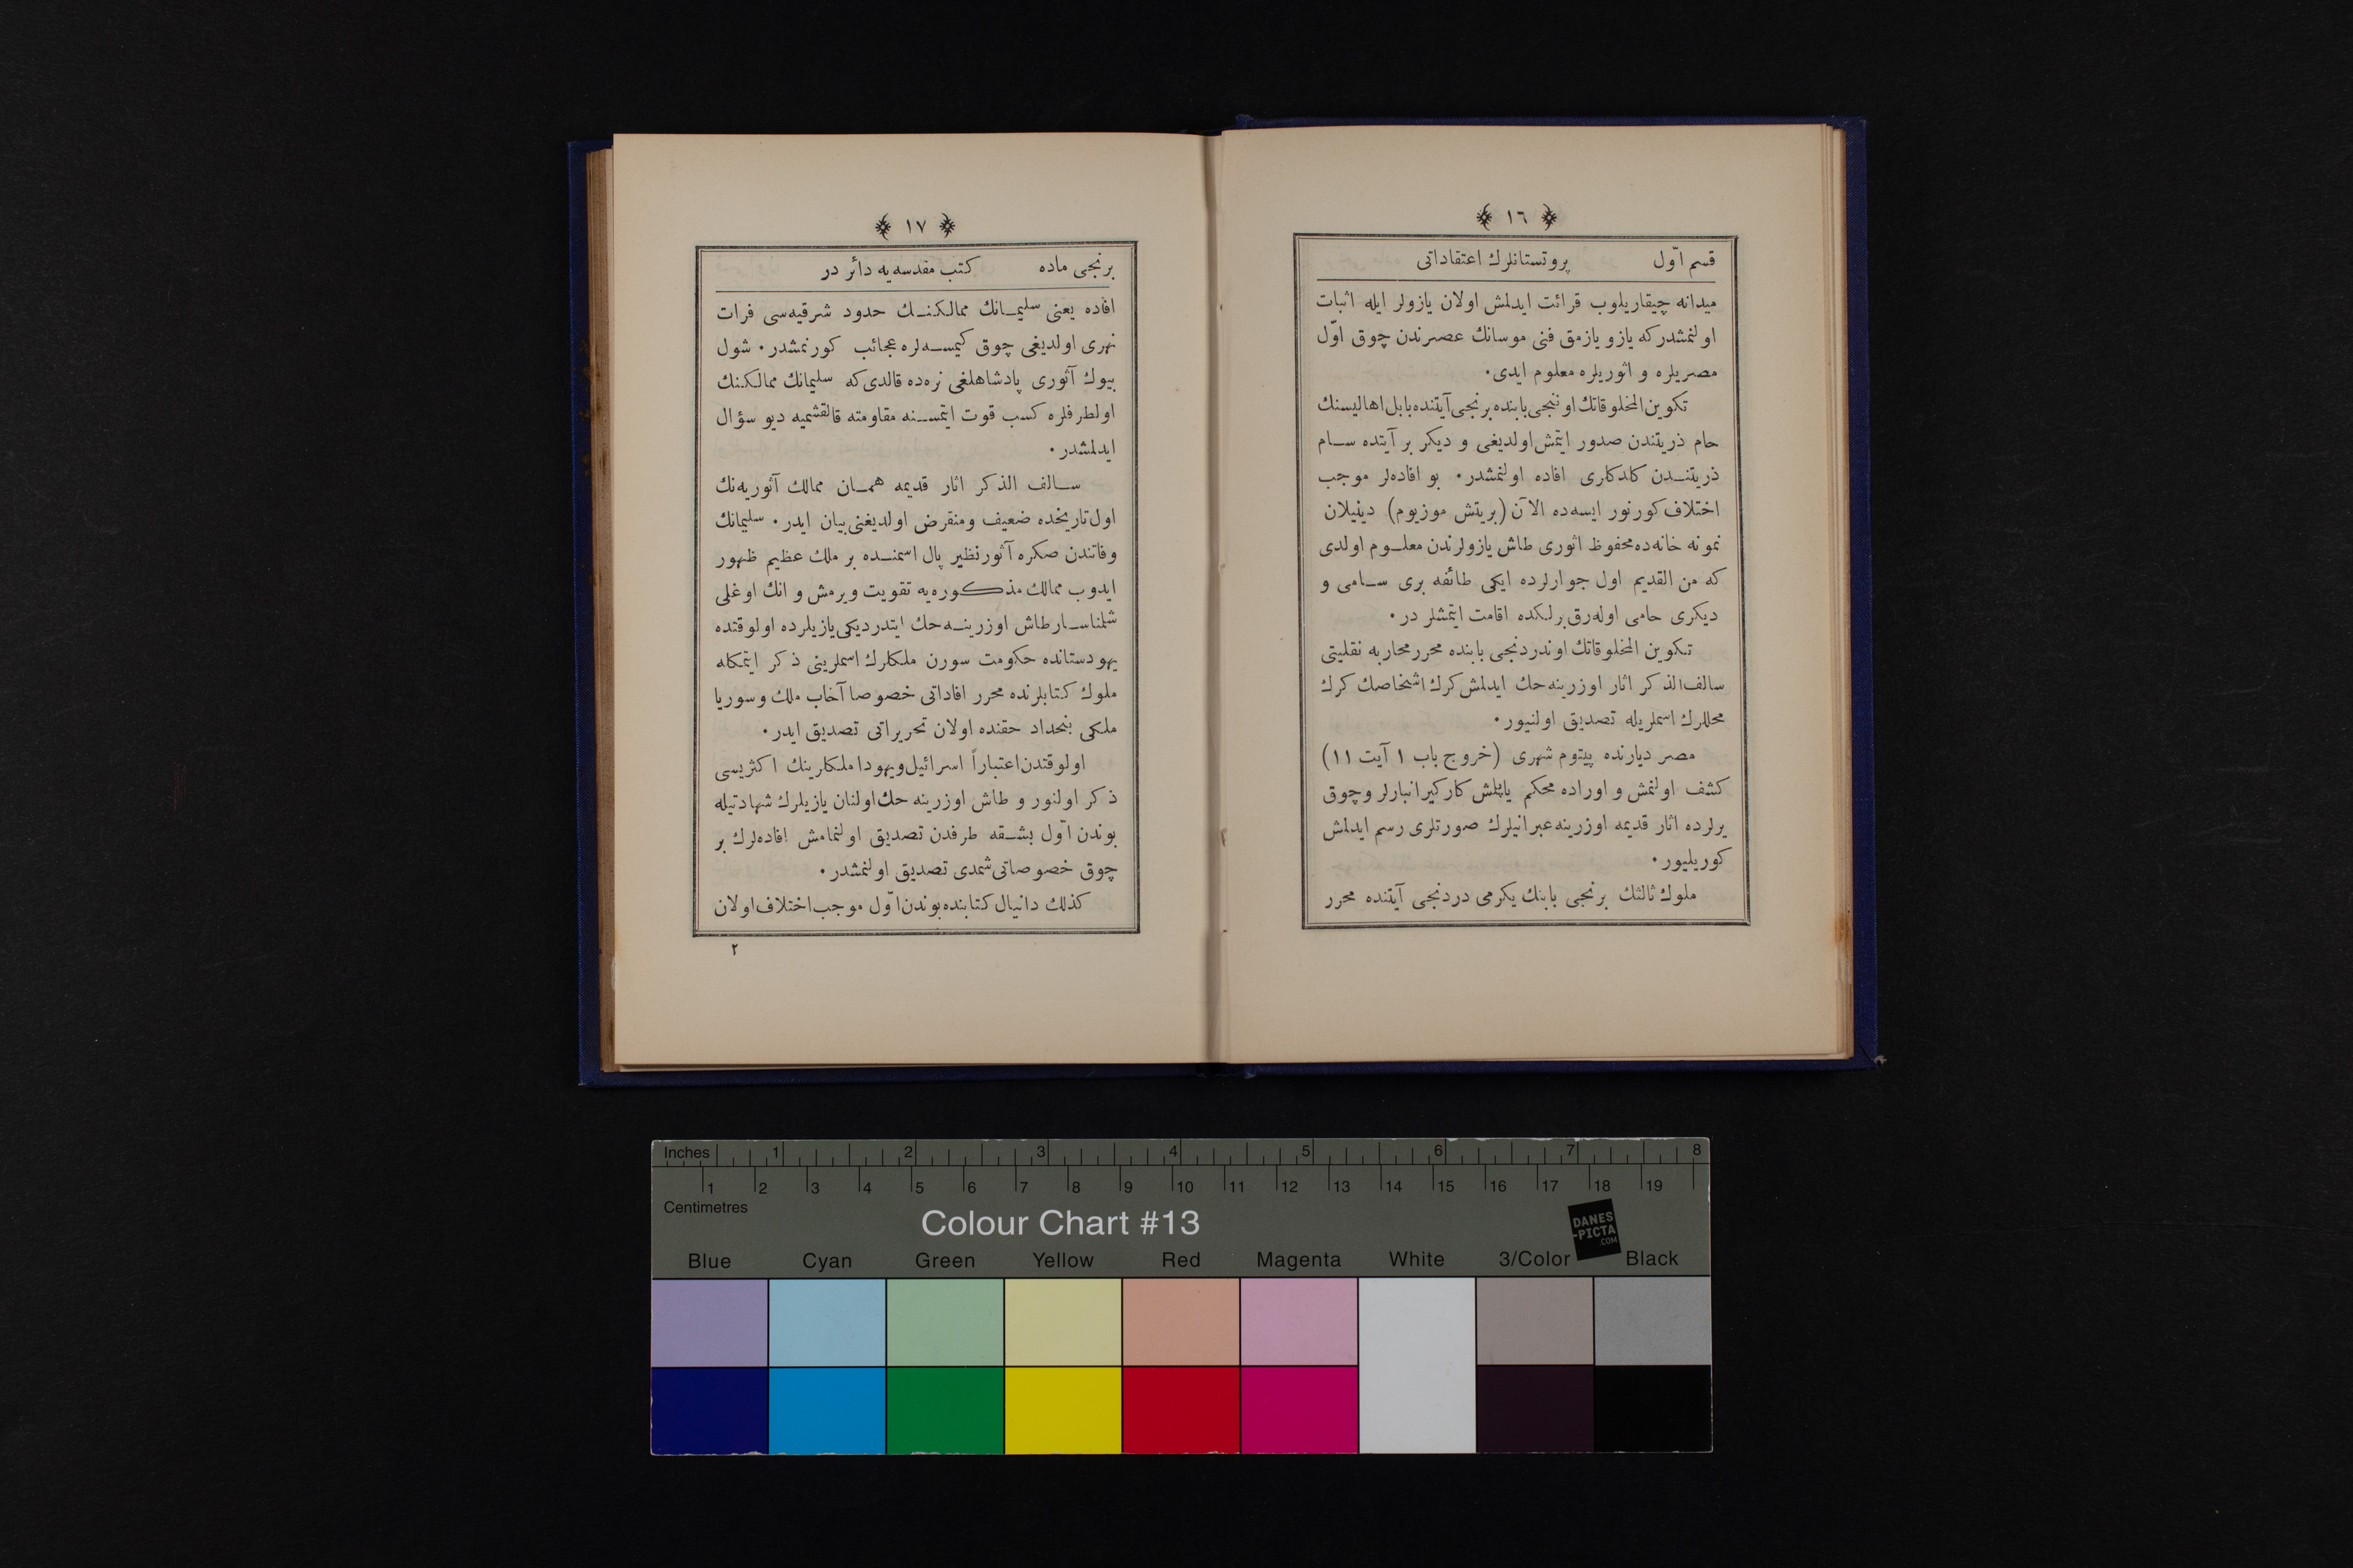 ١٦
قسم اوّل پروتستانلرك اعتقاداتی
میدانه چیقاریلوب قرائت ایدلمش اولان یازولر ایله اثبات
اولنمشدركه یازو یازمق فنی موسانك عصرندن چوق اوّل
مصریلره و اثوریلره معلوم ایدی.
تكوین المخلوقاتك اوننجی بابنده برنجی آیتنده بابل اهالیسنك
حام ذریتندن صدور ایتمش اولدیغی و دیكر بر آیتده سام
ذریتندن كلدكلری افاده اولنمشدر. بو افاده‌لر موجب
اختلاف كورنور ایسه‌ده الآن (بریتش موزیوم) دینیلان
نمونه خانه‌ده محفوظ اثوری طاش یازولرندن معلوم اولدی
كه من القدیم اول جوارلرده ایكی طائفه بری سامی و
دیكری حامی اوله‌رق برلكده اقامت ایتمشلر در.
تكوین المخلوقاتك اوندردنجی بابنده محرر محاربه نقلیتی
سالف الذكر اثار اوزرینه حك ایدلمش كرك اشخاصك كرك
محللرك اسملریله تصدیق اولنیور.
مصر دیارنده پیتوم شهری (خروج باب ١ آیت ١١)
كشف اولنمش و اوراده محكم یاپلمش كاركیر انبارلر و چوق
یرلرده اثار قدیمه اوزرینه عبرانیلرك صورتلری رسم ایدلمش
كوریلیور.
ملوك ثالثك برنجی بابنك یكرمی دردنجی آیتنده محرر
١٧
برنجی ماده كتب مقدسه‌یه دائر در
افاده یعنی سلیمانك ممالكنك حدود شرقیه‌سی فرات
نهری اولدیغی چوق كیمسه‌لره عجائب كورنمشدر. شول
بیوك آثوری پادشاهلغی نره‌ده قالدی كه سلیمانك ممالكنك
اولطرفلره كسب قوت ایتمسنه مقاومته قالقشمیه دیو سؤال
ایدلمشدر.
سالف الذكر اثار قدیمه همان ممالك آثوریه‌نك
اول تاریخده ضعیف و منقرض اولدیغنی بیان ایدر. سلیمانك
وفاتندن صكره آثورنظیر پال اسمنده بر ملك عظیم ظهور
ایدوب ممالك مذكوره‌یه تقویت ویرمش و انك اوغلی
شلمناسار طاش اوزرینه حك ایتدردیكی یازیلرده اولوقتده
یهودستانده حكومت سورن ملكلرك اسملرینی ذكر ایتمكله
ملوك كتابلرنده محرر افاداتی خصوصا آخاب ملك و سوریا
ملكی بنحداد حقنده اولان تحریراتی تصدیق ایدر.
اولوقتدن اعتباراً اسرائیل و یهودا ملكلرینك اكثریسی
ذكر اولنور و طاش اوزرینه حك اولنان یازیلرك شهادتیله
بوندن اوّل بشقه طرفدن تصدیق اولنمامش افاده‌لرك بر
چوق خصوصاتی شمدی تصدیق اولنمشدر.
كذلك دانیال كتابنده بوندن اوّل موجب اختلاف اولان
٢
Inches 1 2 3 4 5 6 7 8
1 2 3 4 5 6 7 8 9 10 11 12 13 14 15 16 17 18 19
Centimetres
Colour Chart #13
DANES
-PICTA
.COM
Blue Cyan Green Yellow Red Magenta White 3/Color Black